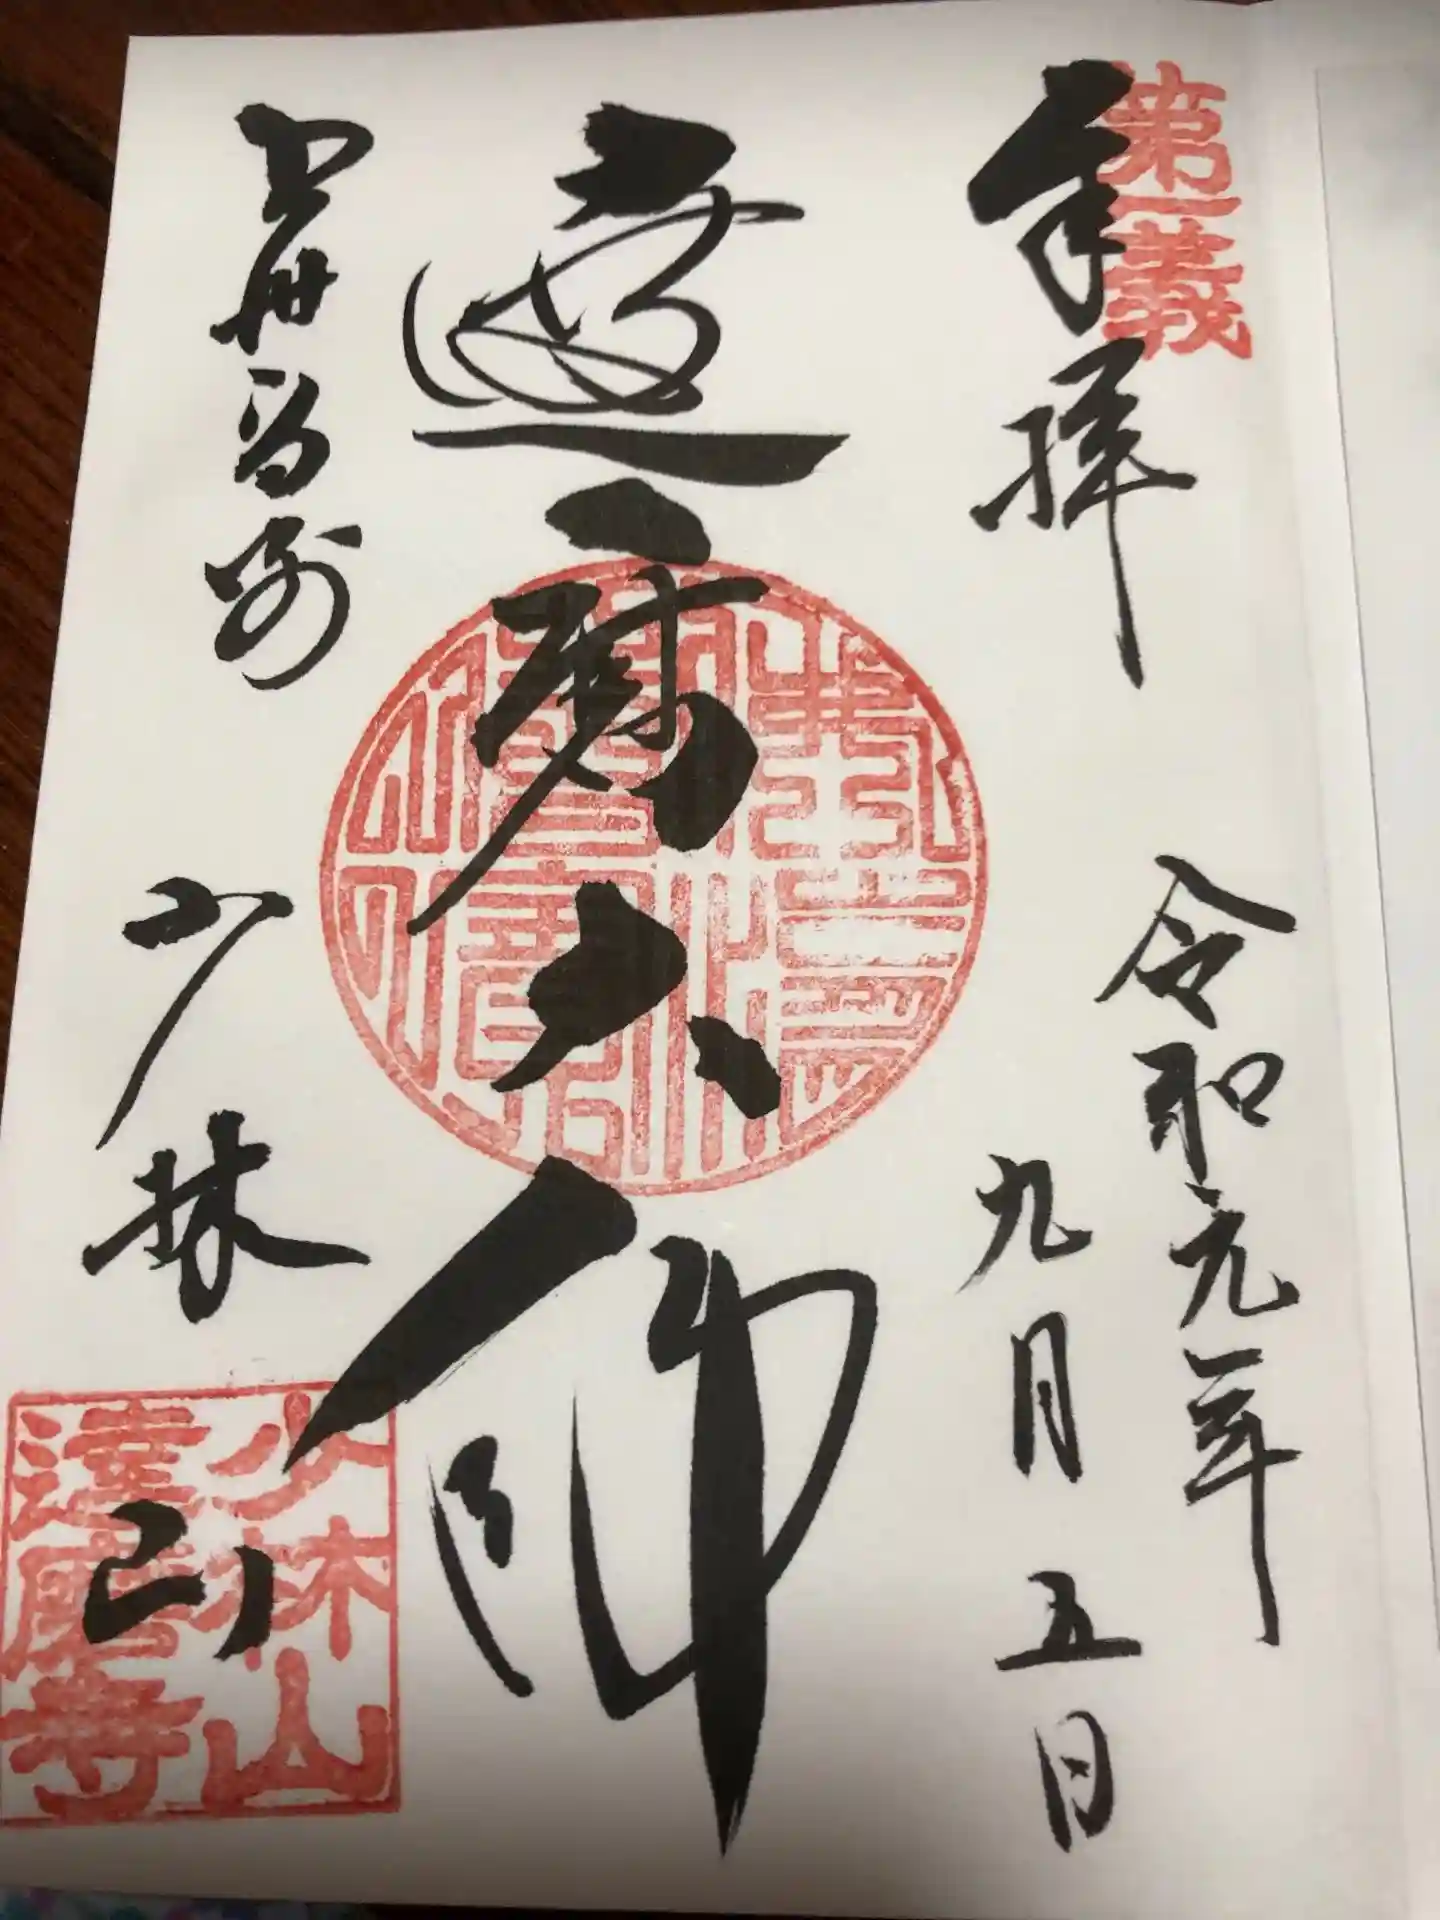 第一義
奉拝
令和元年
九月五日
達磨大師
上州
少林山
少林山
達磨寺